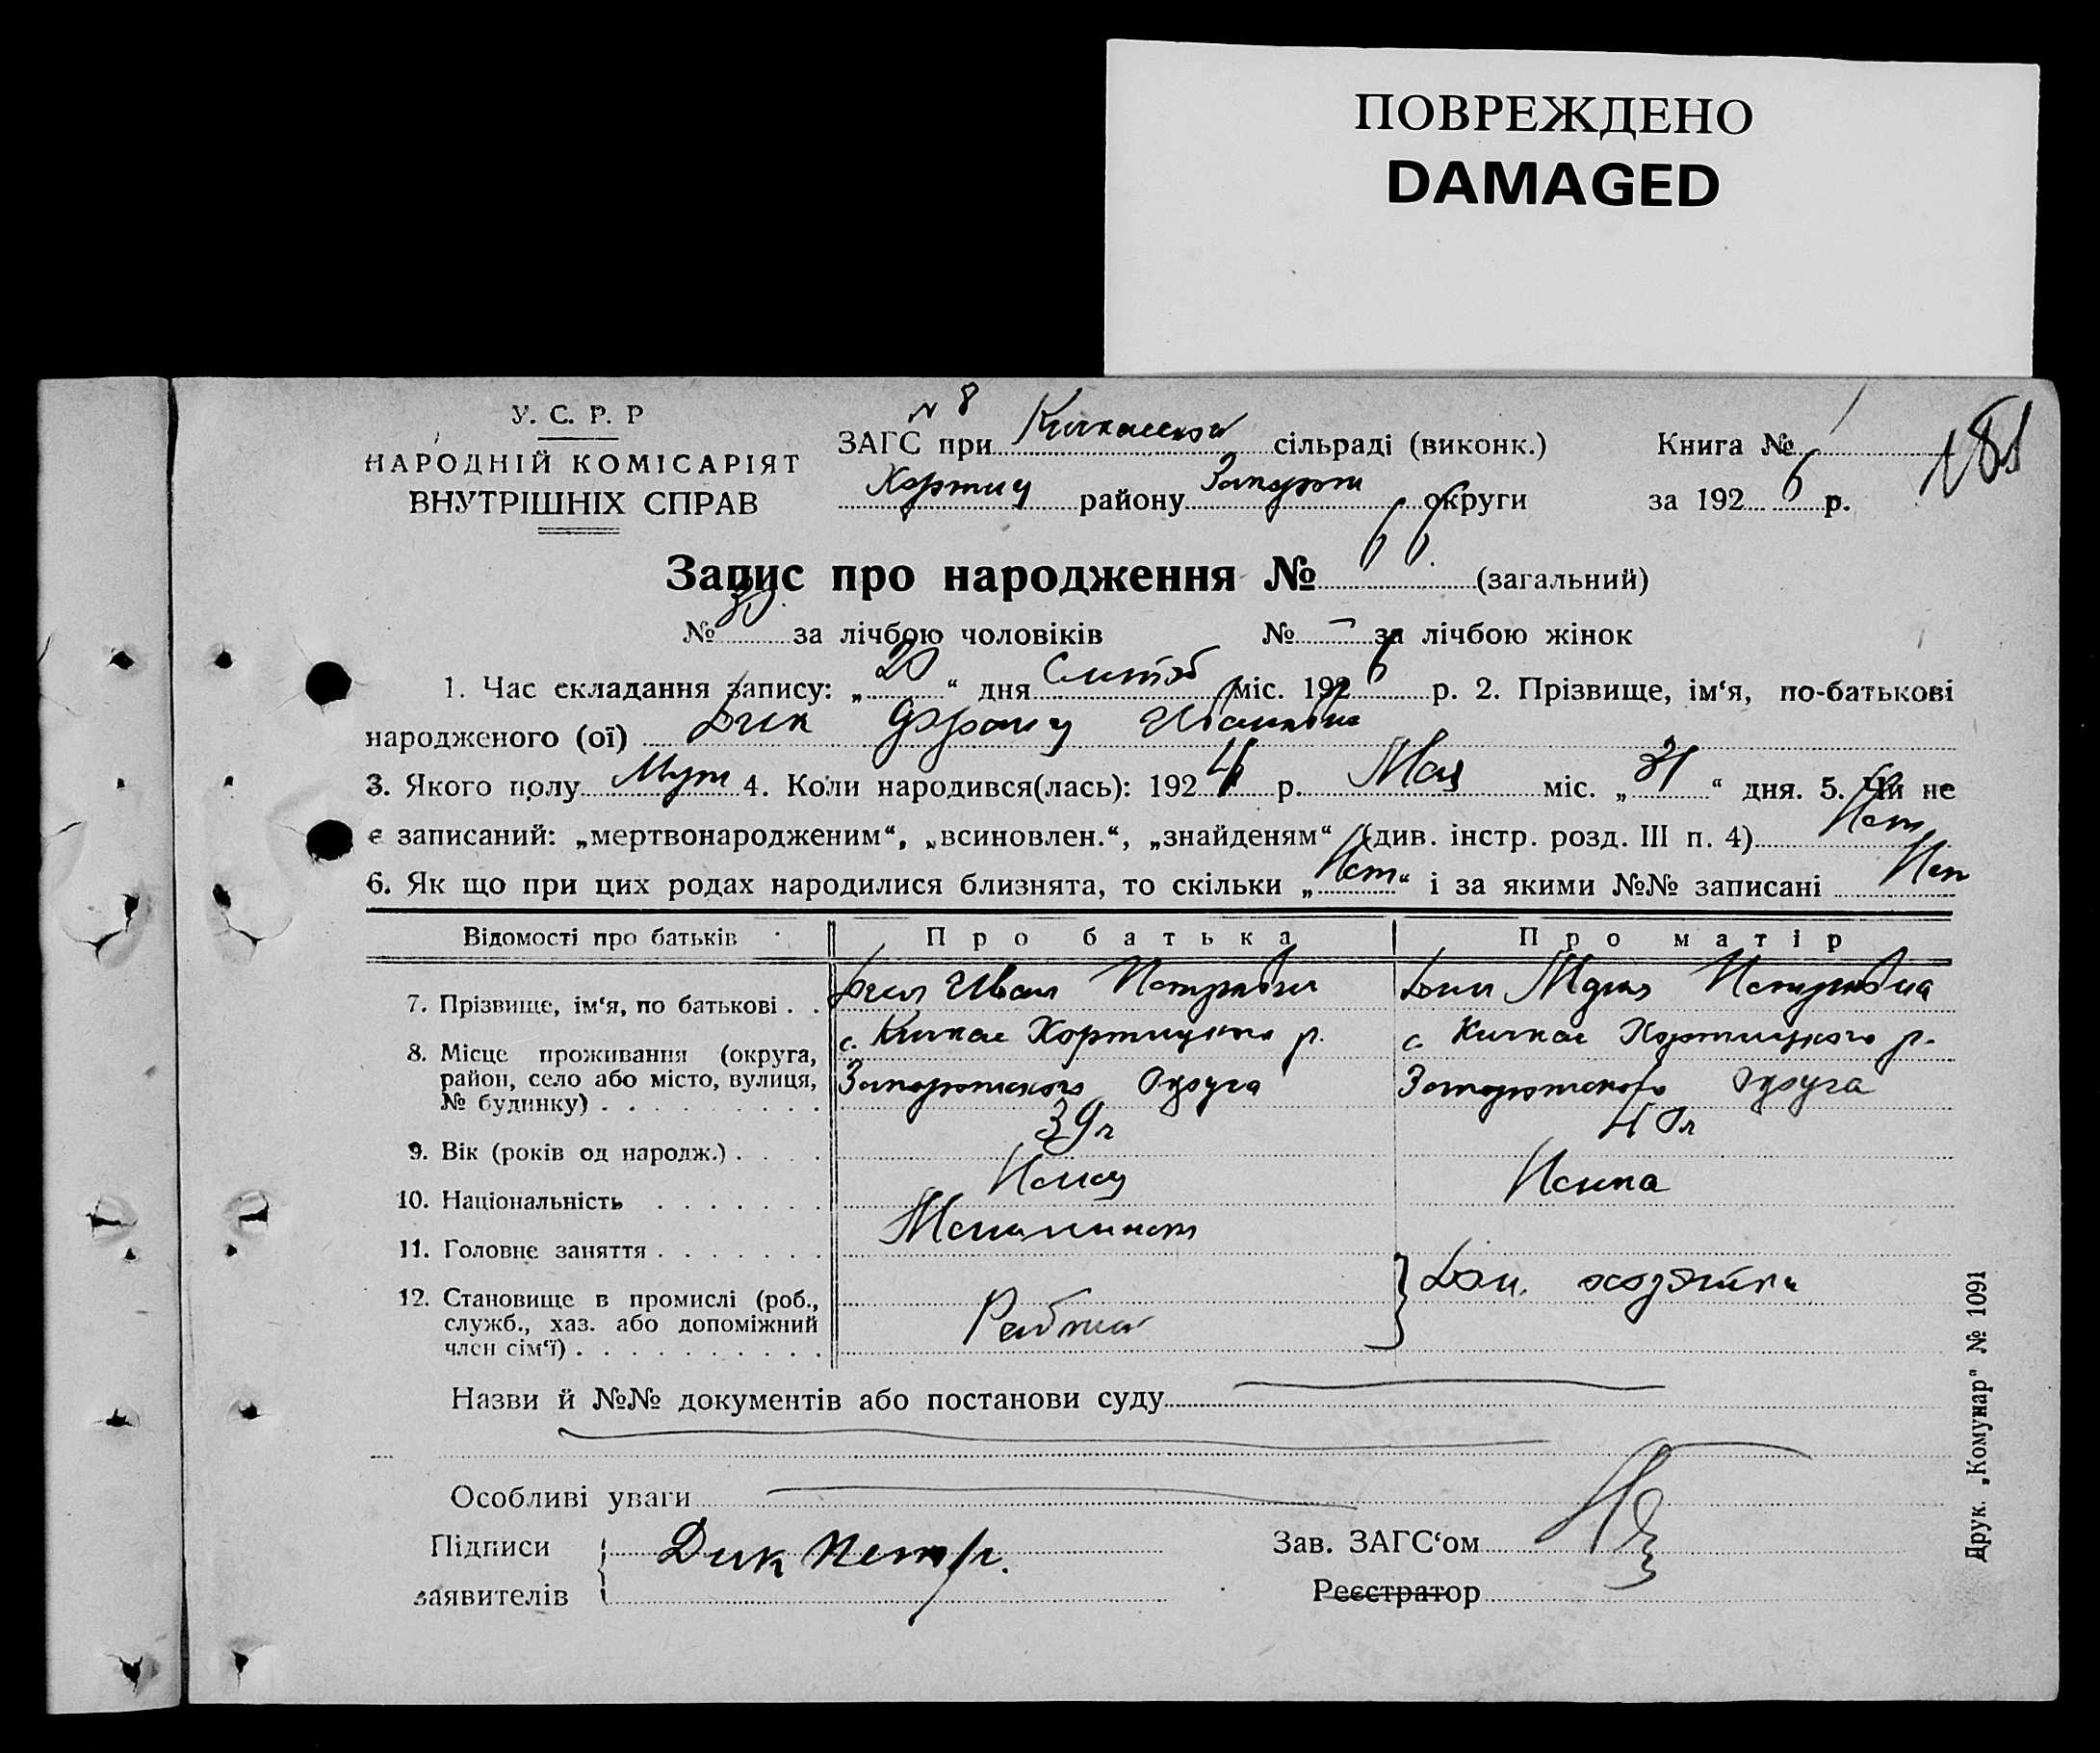 ПОВРЕЖДЕНО
DAMAGED
У. С. Р. Р
НАРОДНІЙ КОМІСАРІЯТ
ВНУТРІШНІХ СПРАВ
№ 8
ЗАГС при Кичкасской сільраді (виконк.)
Хортиц району Запорож округи
Книга № 1
за 1926 р.
181
Запис про народження № 66. (загальний)
№ 30 за лічбою чоловіків № – за лічбою жінок
1. Час складання запису: „20“ дня міс. 1926 р. 2. Прізвище, ім‘я, по-батькові
народженого (ої) Дик Франц Иванович
3. Якого полу Муж 4. Коли народився(лась): 1924 р. Мая міс. „31“ дня. 5. Чи не
є записаний: „мертвонародженим“, „всиновлен.“, „знайденям“ (див. інстр. розд. III п. 4) Нет
6. Як що при цих родах народилися близнята, то скільки „Нет“ і за якими №№ записані Нет
Відомості про батьків Про батька Про матір
7. Прізвище, ім‘я, по батькові . . Дик Иван Петрович Дик Мария Петровна
8. Місце проживання (округа, район, село або місто, вулиця, № будинку) . . . . . . . . . с. Кичкас Хортицкого р. Запорожского Округа с. Кичкас Хортицкого р. Запорожского Округа
9. Вік (років од народж.) . . . . 39 л 40 л
10. Національність . . . . . . . Немец Немка
11. Головне заняття . . . . . . . Машинист
12. Становище в промислі (роб., служб., хаз. або допоміжний член сім‘ї) . . . . . . . . . . Рабочий } Дом. хозяйка
Назви й №№ документів або постанови суду
Особливі уваги
Підписи
заявителів
Дик Петр.
Зав. ЗАГС‘ом
Реєстратор
Друк. „Комунар" № 1091